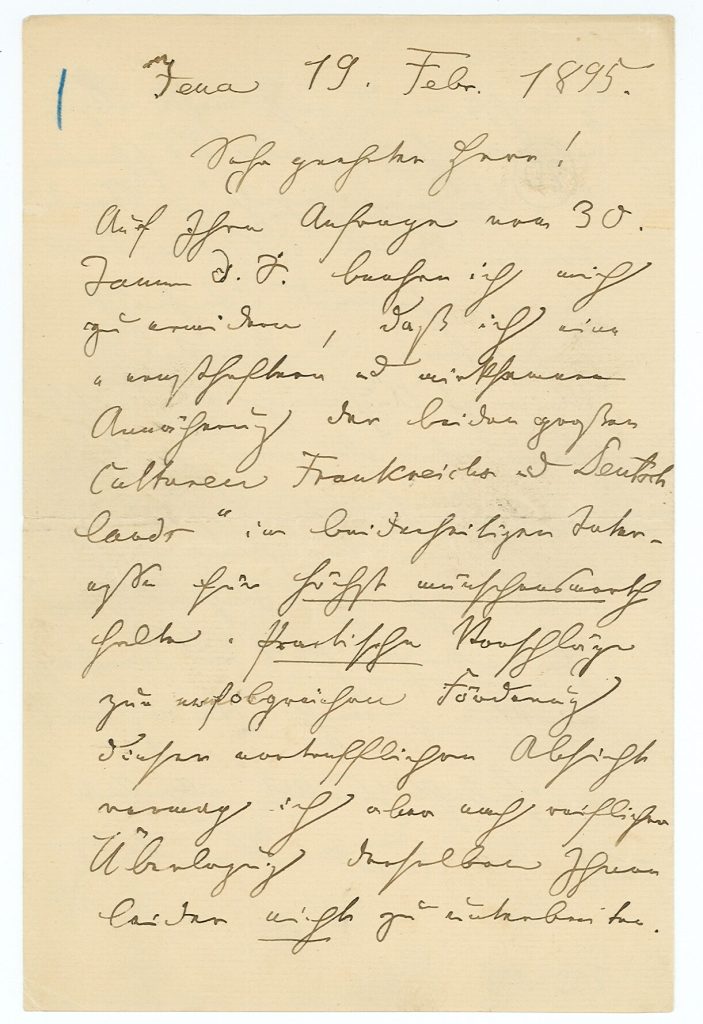 Jena 19. Febr. 1895.
Sehr geehrter Herr!
Auf Ihre Anfrage vom 30.
Januar d. J. beehre ich mich
zu erwidern, daß ich eine
„ernsthaftere und wirksamere
Annäherung der beiden großen
Culturen Frankreichs und Deutsch
lands“ im beiderseitigen Inter-
esse für höchst wünschenswerth
halte. Practische Vorschläge
zur erfolgreichen Förderung
dieser vortrefflichen Absicht
vermag ich aber nach reiflicher
Überlegung derselben Ihnen
leider nicht zu unterbreiten.